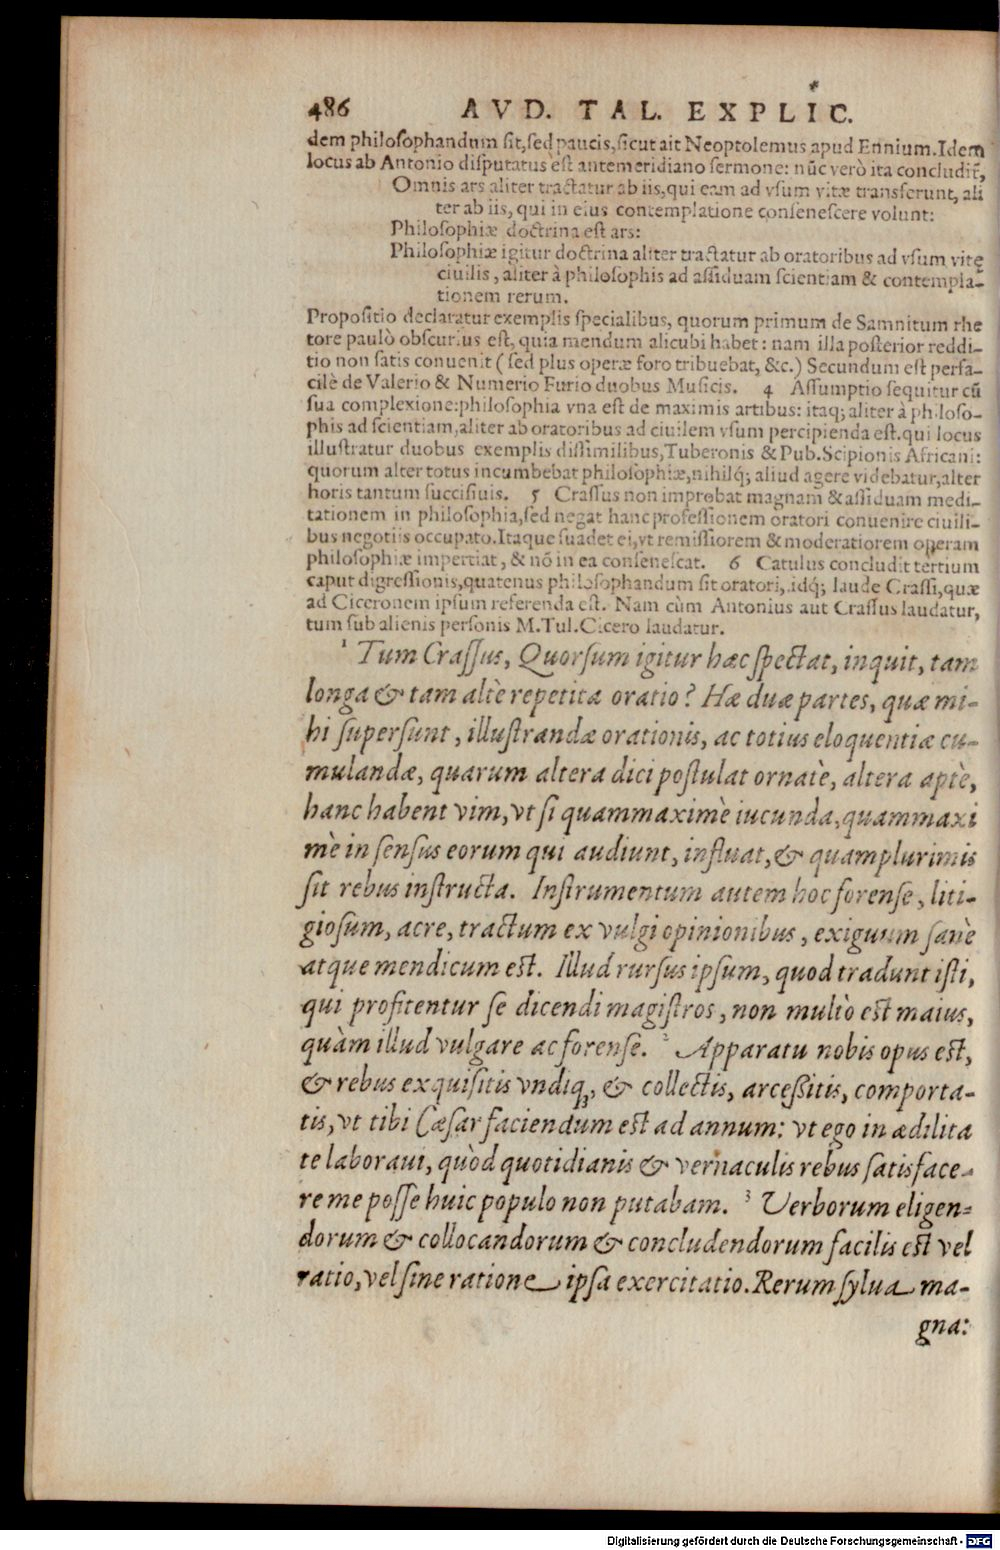 486 AVD. TAL. EXPLIC.
dem philosophandum sit, sed paucis, sicut ait Neoptolemus apud Ennium. Idem
locus ab Antonio disputatus est antemeridiano sermone: nūc verò ita concludit,
Omnis ars aliter tractatur ab iis, qui eam ad vsum vitæ transferunt, ali
ter ab iis, qui in eius contemplatione consenescere volunt:
Philosophiæ doctrina est ars:
Philosophiæ igitur doctrina aliter tractatur ab oratoribus ad vsum vitę
ciuilis, aliter à philosophis ad assiduam scientiam & contempla-
tionem rerum.
Propositio declaratur exemplis specialibus, quorum primum de Samnitum rhe
tore paulò obscurius est, quia mendum alicubi habet: nam illa posterior reddi-
tio non satis conuenit (sed plus operæ foro tribuebat, &c.) Secundum est perfa-
cilè de Valerio & Numerio Furio duobus Musicis. 4 Assumptio sequitur cū
sua complexione: philosophia vna est de maximis artibus: itaq; aliter à philoso-
phis ad scientiam, aliter ab oratoribus ad ciuilem vsum percipienda est. qui locus
illustratur duobus exemplis dissimilibus, Tuberonis & Pub. Scipionis Africani:
quorum alter totus incumbebat philosophiæ, nihilq; aliud agere videbatur, alter
horis tantum succisiuis. 5 Crassus non improbat magnam & assiduam medi-
tationem in philosophia, sed negat hanc professionem oratori conuenire ciuili-
bus negotiis occupato. Itaque suadet ei, vt remissiorem & moderatiorem operam
philosophiæ impertiat, & nō in ea consenescat. 6 Catulus concludit tertium
caput digressionis, quatenus philosophandum sit oratori, idq; laude Crassi, quæ
ad Ciceronem ipsum referenda est. Nam cùm Antonius aut Crassus laudatur,
tum sub alienis personis M. Tul. Cicero laudatur.
1 Tum Crassus, Quorsum igitur hæc spectat, inquit, tam
longa & tam altè repetita oratio? Hæ duæ partes, quæ mi-
hi supersunt, illustrandæ orationis, ac totius eloquentiæ cu-
mulandæ, quarum altera dici postulat ornatè, altera aptè,
hanc habent vim, vt si quammaximè iucunda, quammaxi
mè in sensus eorum qui audiunt, influat, & quamplurimis
sit rebus instructa. Instrumentum autem hoc forense, liti-
giosum, acre, tractum ex vulgi opinionibus, exiguum sanè
atque mendicum est. Illud rursus ipsum, quod tradunt isti,
qui profitentur se dicendi magistros, non multò est maius,
quàm illud vulgare ac forense. 2 Apparatu nobis opus est,
& rebus exquisitis vndiq;, & collectis, arcessitis, comporta-
tis, vt tibi Cæsar faciendum est ad annum: vt ego in ædilita
te laboraui, quòd quotidianis & vernaculis rebus satisface-
re me posse huic populo non putabam. 3 Verborum eligen-
dorum & collocandorum & concludendorum facilis est vel
ratio, vel sine ratione ipsa exercitatio. Rerum sylua ma-
gna:
Digitalisierung gefördert durch die Deutsche Forschungsgemeinschaft - DFG